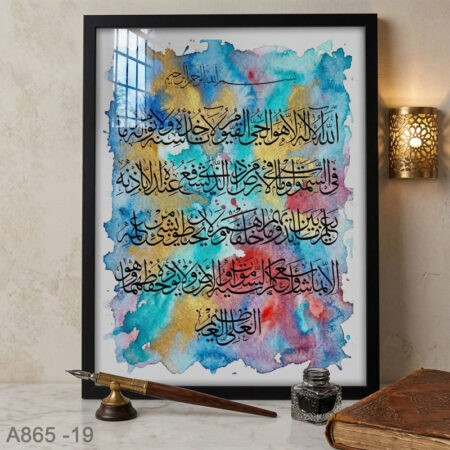 بسم الله الرحمن الرحيم
الله لا إله إلا هو الحي القيوم لا تأخذه سنة ولا نوم له ما
في السموات وما في الأرض من ذا الذي يشفع عنده إلا بإذنه
يعلم ما بين أيديهم وما خلفهم ولا يحيطون بشيء من علمه
إلا بما شاء وسع كرسيه السموات والأرض ولا يؤده حفظهما وهو
العلي العظيم
A865 -19